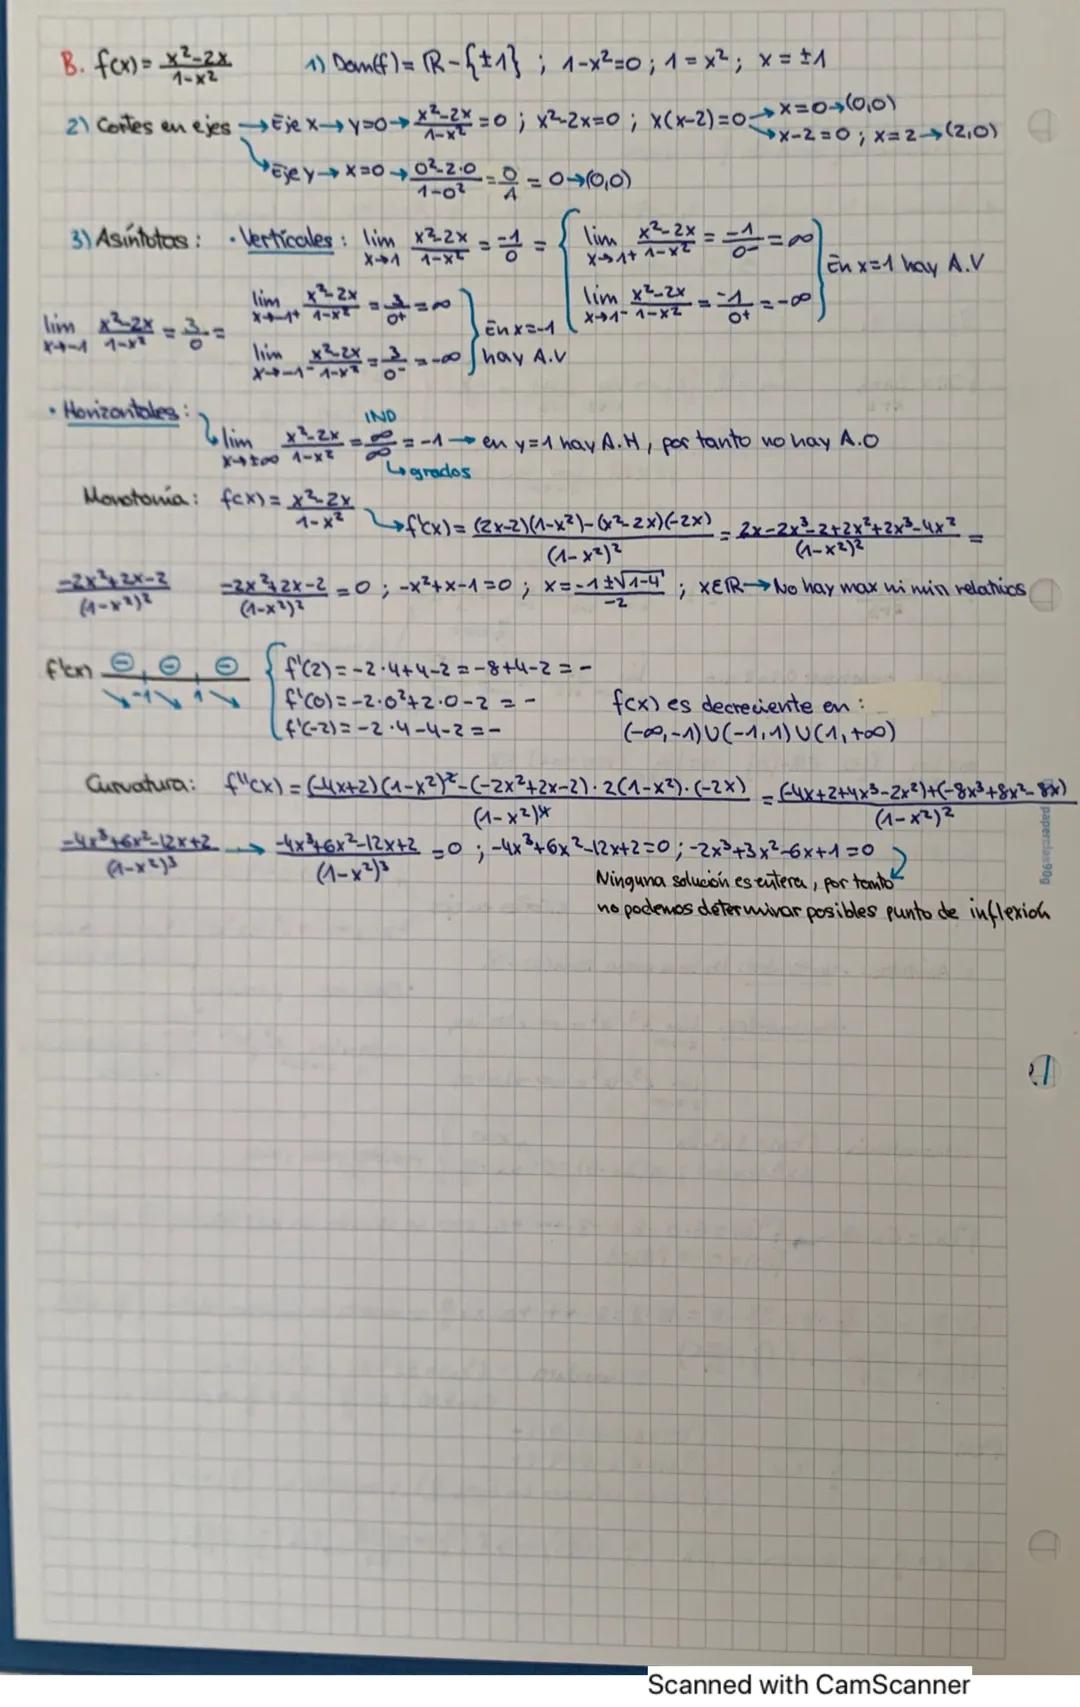 B. f(x) = (x²-2x)/(1-x²)    1) Dom(f) = ℝ-{±1} ; 1-x²=0 ; 1=x² ; x=±1
2) Cortes en ejes → Eje x → y=0 → (x²-2x)/(1-x²) = 0 ; x²-2x=0 ; x(x-2)=0 → x=0 → (0,0)
→ x-2=0 ; x=2 → (2,0)
→ Eje y → x=0 → (0²-2·0)/(1-0²) = 0/1 = 0 → (0,0)
3) Asíntotas : · Verticales : lim x→1 (x²-2x)/(1-x²) = -1/0 = { lim x→1+ (x²-2x)/(1-x²) = -1/0- = ∞
lim x→1- (x²-2x)/(1-x²) = -1/0+ = -∞ } En x=1 hay A.V
lim x→-1 (x²-2x)/(1-x²) = 3/0 = lim x→-1+ (x²-2x)/(1-x²) = 3/0+ = ∞
lim x→-1- (x²-2x)/(1-x²) = 3/0- = -∞ } En x=-1 hay A.V
· Horizontales :
IND
lim x→±∞ (x²-2x)/(1-x²) = ∞/∞ = -1 → en y=1 hay A.H, por tanto no hay A.O
↳ grados
Monotonía : f(x) = (x²-2x)/(1-x²)
→ f'(x) = ((2x-2)(1-x²)-(x²-2x)(-2x))/(1-x²)² = (2x-2x³-2+2x²+2x³-4x²)/(1-x²)² =
(-2x²+2x-2)/(1-x²)²    (-2x²+2x-2)/(1-x²)² = 0 ; -x²+x-1=0 ; x = (-1±√1-4)/-2 ; x∈ℝ → No hay max ni min relativos
f'(x) ⊖ -1 ⊖ 1 ⊖ { f'(2) = -2·4+4-2 = -8+4-2 = -
f'(0) = -2·0²+2·0-2 = -
f'(-2) = -2·4-4-2 = -
f(x) es decreciente en :
(-∞,-1)∪(-1,1)∪(1,+∞)
Curvatura : f''(x) = ((-4x+2)(1-x²)²-(-2x²+2x-2)·2(1-x²)·(-2x))/(1-x²)⁴ = ((-4x+2+4x³-2x²)+(-8x³+8x²-8x))/(1-x²)²
(-4x³+6x²-12x+2)/(1-x²)³ → (-4x³+6x²-12x+2)/(1-x²)³ = 0 ; -4x³+6x²-12x+2=0 ; -2x³+3x²-6x+1=0
Ninguna solución es entera, por tanto
no podemos determinar posibles punto de inflexión
paperclas90g
Scanned with CamScanner